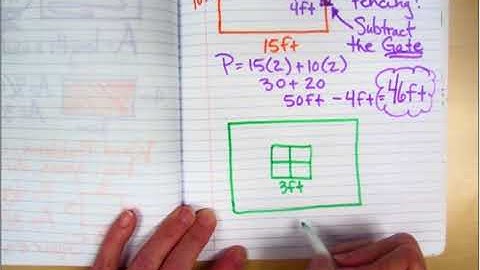 10f
4ft
fencing?
Subtract
the Gate
15ft
P = 15(2) + 10(2)
30 + 20
50ft - 4ft = 46ft.
3ft